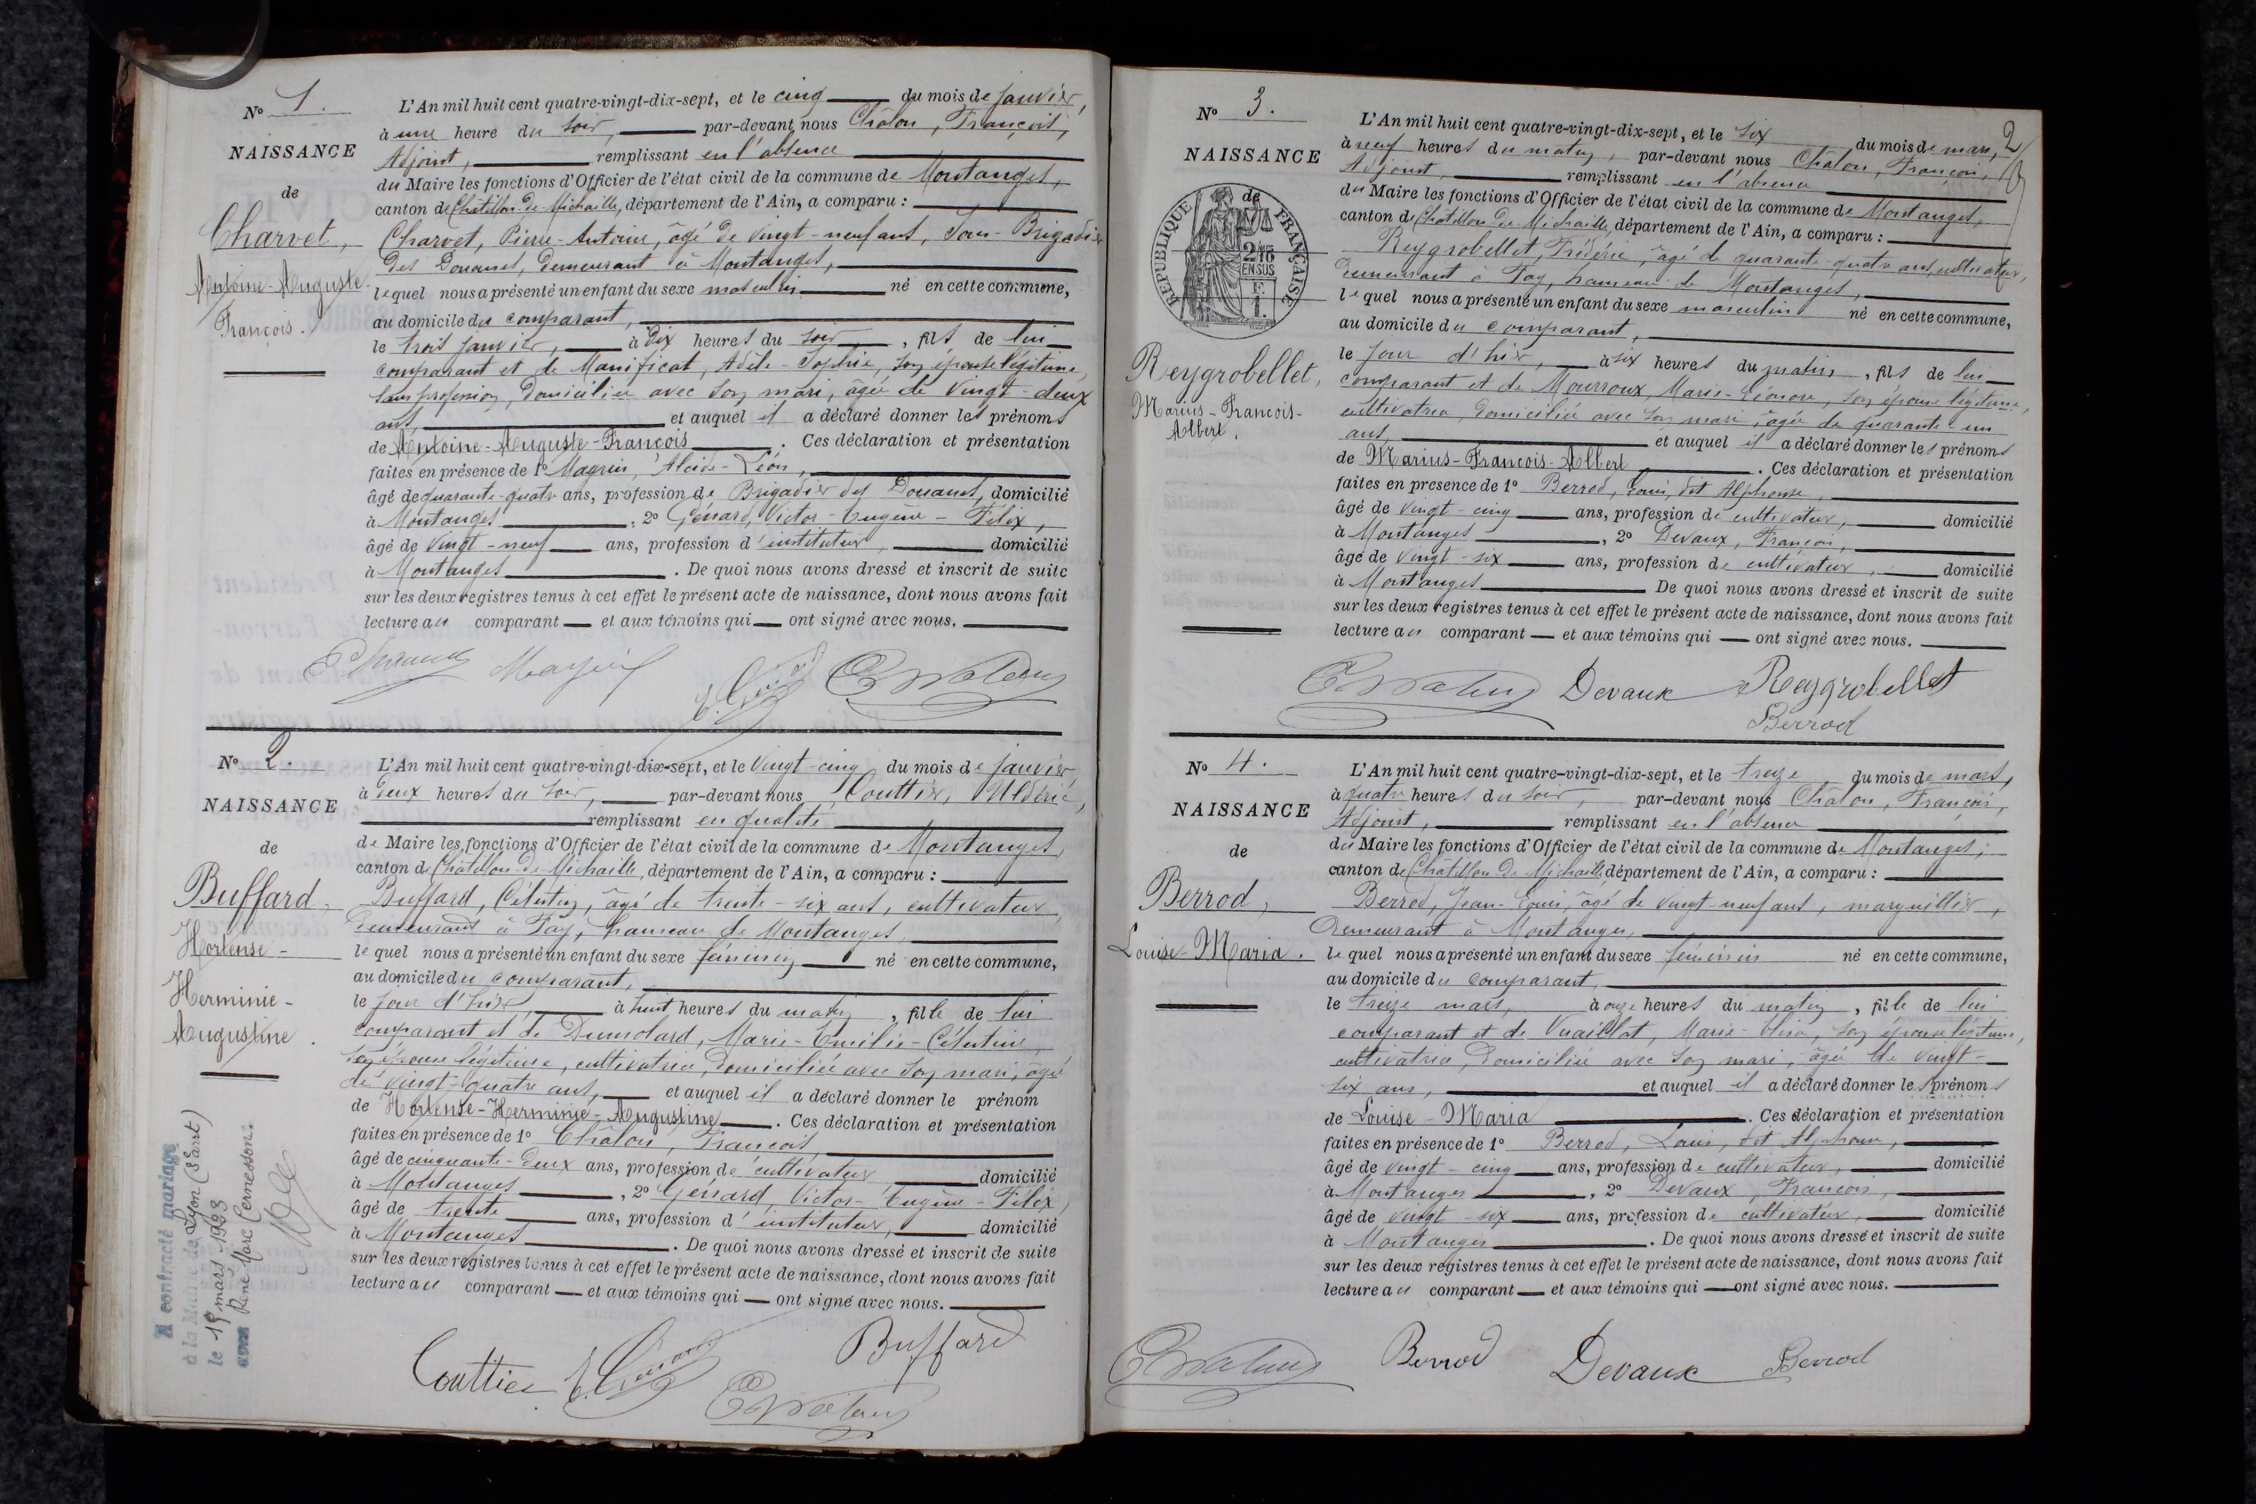 N° 1.
NAISSANCE
de
Charvet,
Antoine-Auguste-
François.
L'An mil huit cent quatre-vingt-dix-sept, et le cinq du mois de janvier,
à une heure du soir, par-devant nous Châlon, François,
Adjoint, remplissant en l'absence
du Maire les fonctions d'Officier de l'état civil de la commune de Montanges,
canton de Châtillon-de-Michaille, département de l'Ain, a comparu :
Charvet, Pierre-Antoine, âgé de vingt-neuf ans, Sous-Brigadier
des Douanes, demeurant à Montanges,
lequel nous a présenté un enfant du sexe masculin né en cette commune,
au domicile du comparant,
le trois janvier, à dix heures du soir, fils de lui
comparant et de Manificat, Adèle-Sophie, son épouse légitime,
sans profession, domiciliée avec son mari, âgée de vingt-deux
ans, et auquel il a déclaré donner les prénoms
de Antoine-Auguste-François. Ces déclaration et présentation
faites en présence de 1° Magnin, Alcide-Léon,
âgé de quarante-quatre ans, profession de Brigadier des Douanes, domicilié
à Montanges, 2° Génard, Victor-Eugène-Félix,
âgé de vingt-neuf ans, profession d'instituteur, domicilié
à Montanges. De quoi nous avons dressé et inscrit de suite
sur les deux registres tenus à cet effet le présent acte de naissance, dont nous avons fait
lecture au comparant et aux témoins qui ont signé avec nous.
N° 2.
NAISSANCE
de
Buffard,
Hortense-
Herminie-
Augustine.
A contracté mariage
à la Mairie de Lyon (3e arrt)
le 19 mars 1923
avec René Marc Cernesson.
L'An mil huit cent quatre-vingt-dix-sept, et le vingt-cinq du mois de janvier,
à deux heures du soir, par-devant nous Couttier, Uldéric,
remplissant en qualité
de Maire les fonctions d'Officier de l'état civil de la commune de Montanges,
canton de Châtillon-de-Michaille, département de l'Ain, a comparu :
Buffard, Célestin, âgé de trente-six ans, cultivateur,
demeurant à Fay, hameau de Montanges,
lequel nous a présenté un enfant du sexe féminin né en cette commune,
au domicile du comparant,
le jour d'hier à huit heures du matin, fille de lui
comparant et de Dumolard, Marie-Emilie-Célestine,
son épouse légitime, cultivatrice, domiciliée avec son mari, âgée
de vingt-quatre ans, et auquel il a déclaré donner le prénom
de Hortense-Herminie-Augustine. Ces déclaration et présentation
faites en présence de 1° Châlon, François,
âgé de cinquante-deux ans, profession de cultivateur, domicilié
à Montanges, 2° Génard, Victor-Eugène-Félix,
âgé de trente ans, profession d'instituteur, domicilié
à Montanges. De quoi nous avons dressé et inscrit de suite
sur les deux registres tenus à cet effet le présent acte de naissance, dont nous avons fait
lecture au comparant et aux témoins qui ont signé avec nous.
Couttier
Buffard
2
N° 3.
NAISSANCE
de
RÉPUBLIQUE FRANÇAISE
2/10 EN SUS
F. 1.
Reygrobellet,
Marius-François-
Albert.
L'An mil huit cent quatre-vingt-dix-sept, et le six du mois de mars,
à neuf heures du matin, par-devant nous Châlon, François,
Adjoint, remplissant en l'absence
du Maire les fonctions d'Officier de l'état civil de la commune de Montanges,
canton de Châtillon de Michaille, département de l'Ain, a comparu :
Reygrobellet, Frédéric, âgé de quarante-quatre ans, cultivateur,
demeurant à Fay, hameau de Montanges,
lequel nous a présenté un enfant du sexe masculin né en cette commune,
au domicile du comparant,
le jour d'hier, à six heures du matin, fils de lui
comparant et de Mourroux, Marie-Léonore, son épouse légitime,
cultivatrice, domiciliée avec son mari, âgée de quarante-un
ans, et auquel il a déclaré donner les prénoms
de Marius-François-Albert. Ces déclaration et présentation
faites en présence de 1° Berrod, Louis, dit Alphonse,
âgé de vingt-cinq ans, profession de cultivateur, domicilié
à Montanges, 2° Devaux, François,
âgé de vingt-six ans, profession de cultivateur, domicilié
à Montanges De quoi nous avons dressé et inscrit de suite
sur les deux registres tenus à cet effet le présent acte de naissance, dont nous avons fait
lecture au comparant et aux témoins qui ont signé avec nous.
Devaux Reygrobellet
Berrod
N° 4.
NAISSANCE
de
Berrod,
Louise-Maria.
L'An mil huit cent quatre-vingt-dix-sept, et le treize du mois de mars,
à quatre heures du soir, par-devant nous Châlon, François,
Adjoint, remplissant en l'absence
du Maire les fonctions d'Officier de l'état civil de la commune de Montanges,
canton de Châtillon de Michaille, département de l'Ain, a comparu :
Berrod, Jean-Louis, âgé de vingt-neuf ans, marguillier,
demeurant à Montanges,
lequel nous a présenté un enfant du sexe féminin né en cette commune,
au domicile du comparant,
le treize mars, à onze heures du matin, fille de lui
comparant et de Vuaillat, Marie- son épouse légitime,
cultivatrice, domiciliée avec son mari, âgée de vingt-
six ans, et auquel il a déclaré donner les prénoms
de Louise-Maria. Ces déclaration et présentation
faites en présence de 1° Berrod, Louis, dit Alphonse,
âgé de vingt-cinq ans, profession de cultivateur, domicilié
à Montanges, 2° Devaux, François,
âgé de vingt-six ans, profession de cultivateur, domicilié
à Montanges. De quoi nous avons dressé et inscrit de suite
sur les deux registres tenus à cet effet le présent acte de naissance, dont nous avons fait
lecture au comparant et aux témoins qui ont signé avec nous.
Berrod Devaux Berrod